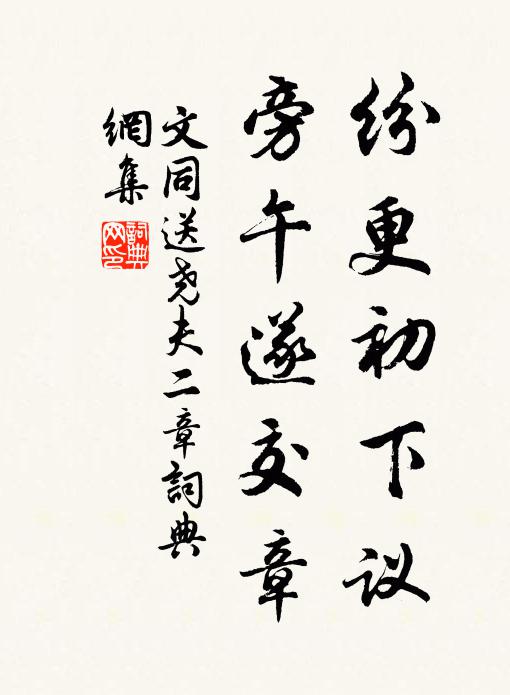 纷更初下议
旁午遂交章
文同送尧夫二章詞典
網集
詞典
网印